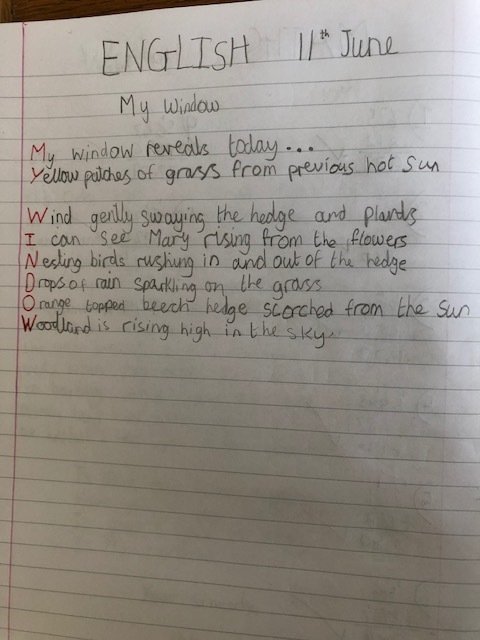 ENGLISH 11th June
My Window
My window reveals today...
Yellow patches of grass from previous hot sun
Wind gently swaying the hedge and plants
I can see Mary rising from the flowers
Nesting birds rushing in and out of the hedge
Drops of rain sparkling on the grass
Orange topped beech hedge scorched from the sun
Woodland is rising high in the sky.